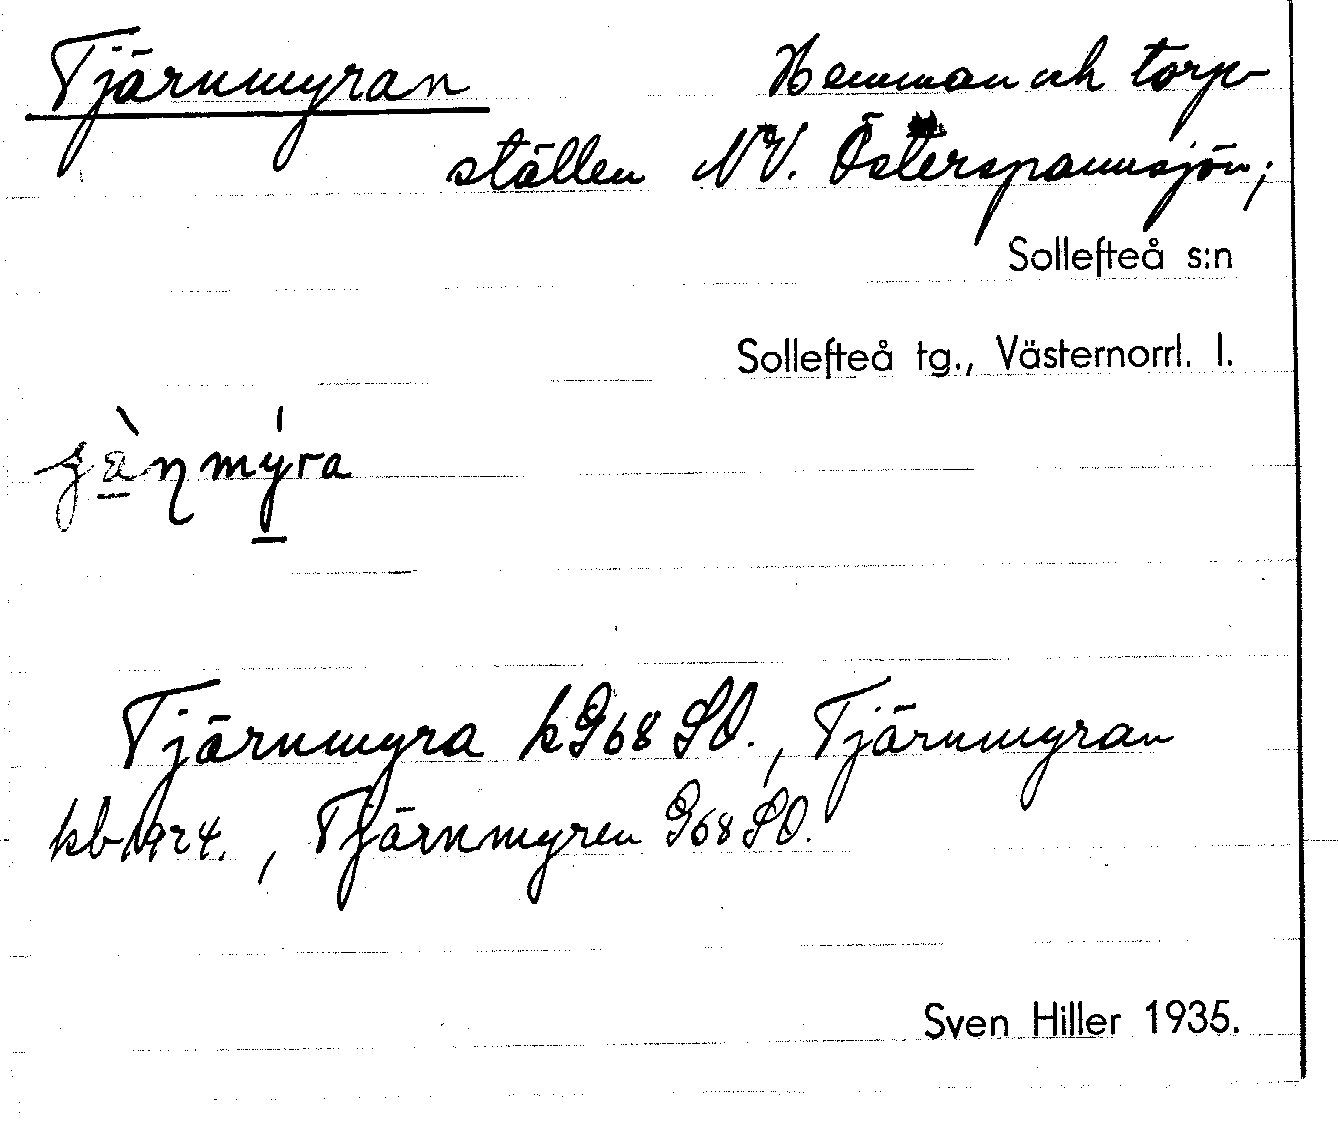 Tjärnmyran Hemman och torp-
ställen NV. Österspannsjön;
Sollefteå s:n
Sollefteå tg., Västernorrl. l.
Tjärnmyra k G68 SO., Tjärnmyran
kb 1924., Tjärnmyren G68 SO.
Sven Hiller 1935.